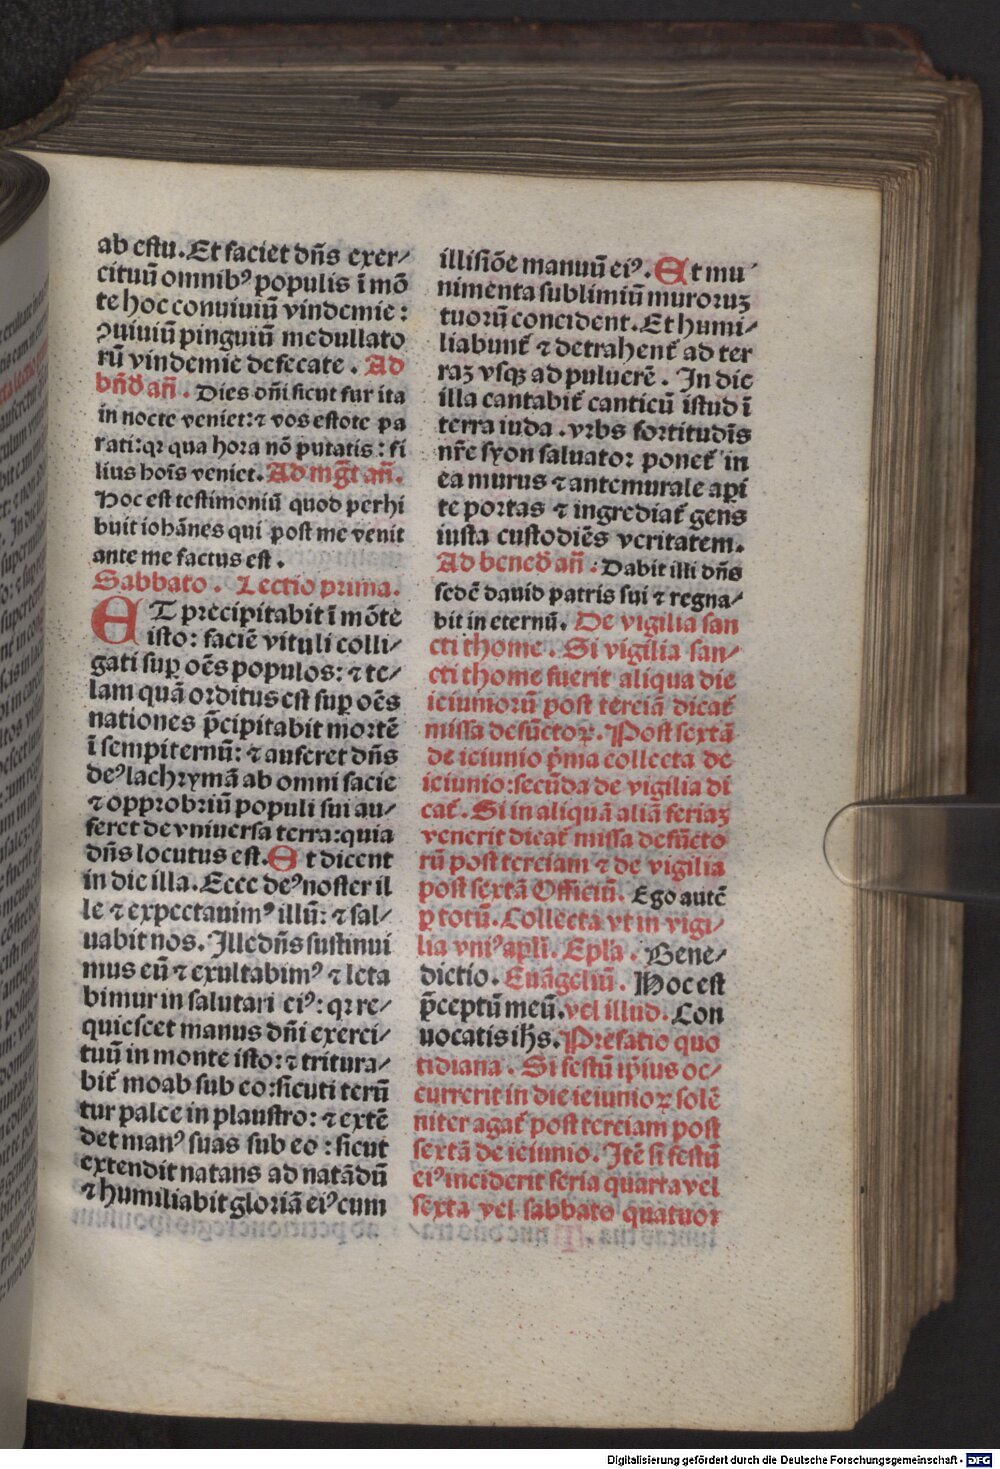 ab estu. Et faciet dñs exer⸗
cituū omnibꝰ populis ī mō
te hoc conuiuiū vindemie:
ↄuiuiū pinguiū medullato
rū vindemie defecate. Ad
bñd añ. Dies dñi sicut fur ita
in nocte veniet: ⁊ vos estote pa
rati: qꝛ qua hora nō putatis: fi
lius hoīs veniet. Ad mg̃t añ.
Hoc est testimoniū quod perhi
buit iohānes qui post me venit
ante me factus est.
Sabbato. Lectio prima.
ET precipitabit ī mōte
isto: faciē vituli colli⸗
gati suꝑ oēs populos: ⁊ te⸗
lam quā orditus est suꝑ oēs
nationes p̄cipitabit mortē
ī sempiternū: ⁊ auferet dñs
deꝰ lachrymā ab omni facie
⁊ opprobriū populi sui au⸗
feret de vniuersa terra: quia
dñs locutus est. Et dicent
in die illa. Ecce deꝰ noster il
le ⁊ expectauimꝰ illū: ⁊ sal⸗
uabit nos. Ille dñs sustinui
mus eū ⁊ exultabimꝰ ⁊ leta
bimur in salutari eiꝰ: qꝛ re⸗
quiescet manus dñi exerci⸗
tuū in monte isto: ⁊ tritura⸗
bit̃ moab sub eo: sicuti terū
tur palee in plaustro: ⁊ extē
det manꝰ suas sub eo: sicut
extendit natans ad natādū
⁊ humiliabit gloriā eiꝰ cum
illisiōe manuū eiꝰ. Et mu
nimenta sublimiū muroruꝫ
tuorū concident. Et humi⸗
liabunt̃ ⁊ detrahent̃ ad ter
raꝫ vsqꝫ ad puluerē. In die
illa cantabit̃ canticū istud ī
terra iuda. vrbs fortitudīs
nr̄e syon saluator ponet̃ in
ea murus ⁊ antemurale apī
te portas ⁊ ingrediat̃ gens
iusta custodiēs veritatem.
Ad bened añ. Dabit illi dñs
sedē dauid patris sui ⁊ regna⸗
bit in eternū. De vigilia san
cti thome. Si vigilia san⸗
cti thome fuerit aliqua die
ieiuniorū post terciā dicat̃
missa defūctoꝝ. Post sextā
de ieiunio p̄ma collecta de
ieiunio: secūda de vigilia di
cat̃. Si in aliquā aliā feriaꝫ
venerit dicat̃ missa defūcto
rū post terciam ⁊ de vigilia
post sextā Officiū. Ego autē
ꝑ totū. Collecta vt in vigi⸗
lia vniꝰ apl̄i. Epl̄a. Bene⸗
dictio. Euāgeliū. Hoc est
p̄ceptū meū. vel illud. Con
uocatis ih̄s. Prefatio quo
tidiana. Si festū ip̄ius oc⸗
currerit in die ieiunioꝝ solē
niter agat̃ post terciam post
sextā de ieiunio. Itē si festū
eiꝰ inciderit feria quarta vel
sexta vel sabbato quatuor
Digitalisierung gefördert durch die Deutsche Forschungsgemeinschaft - DFG